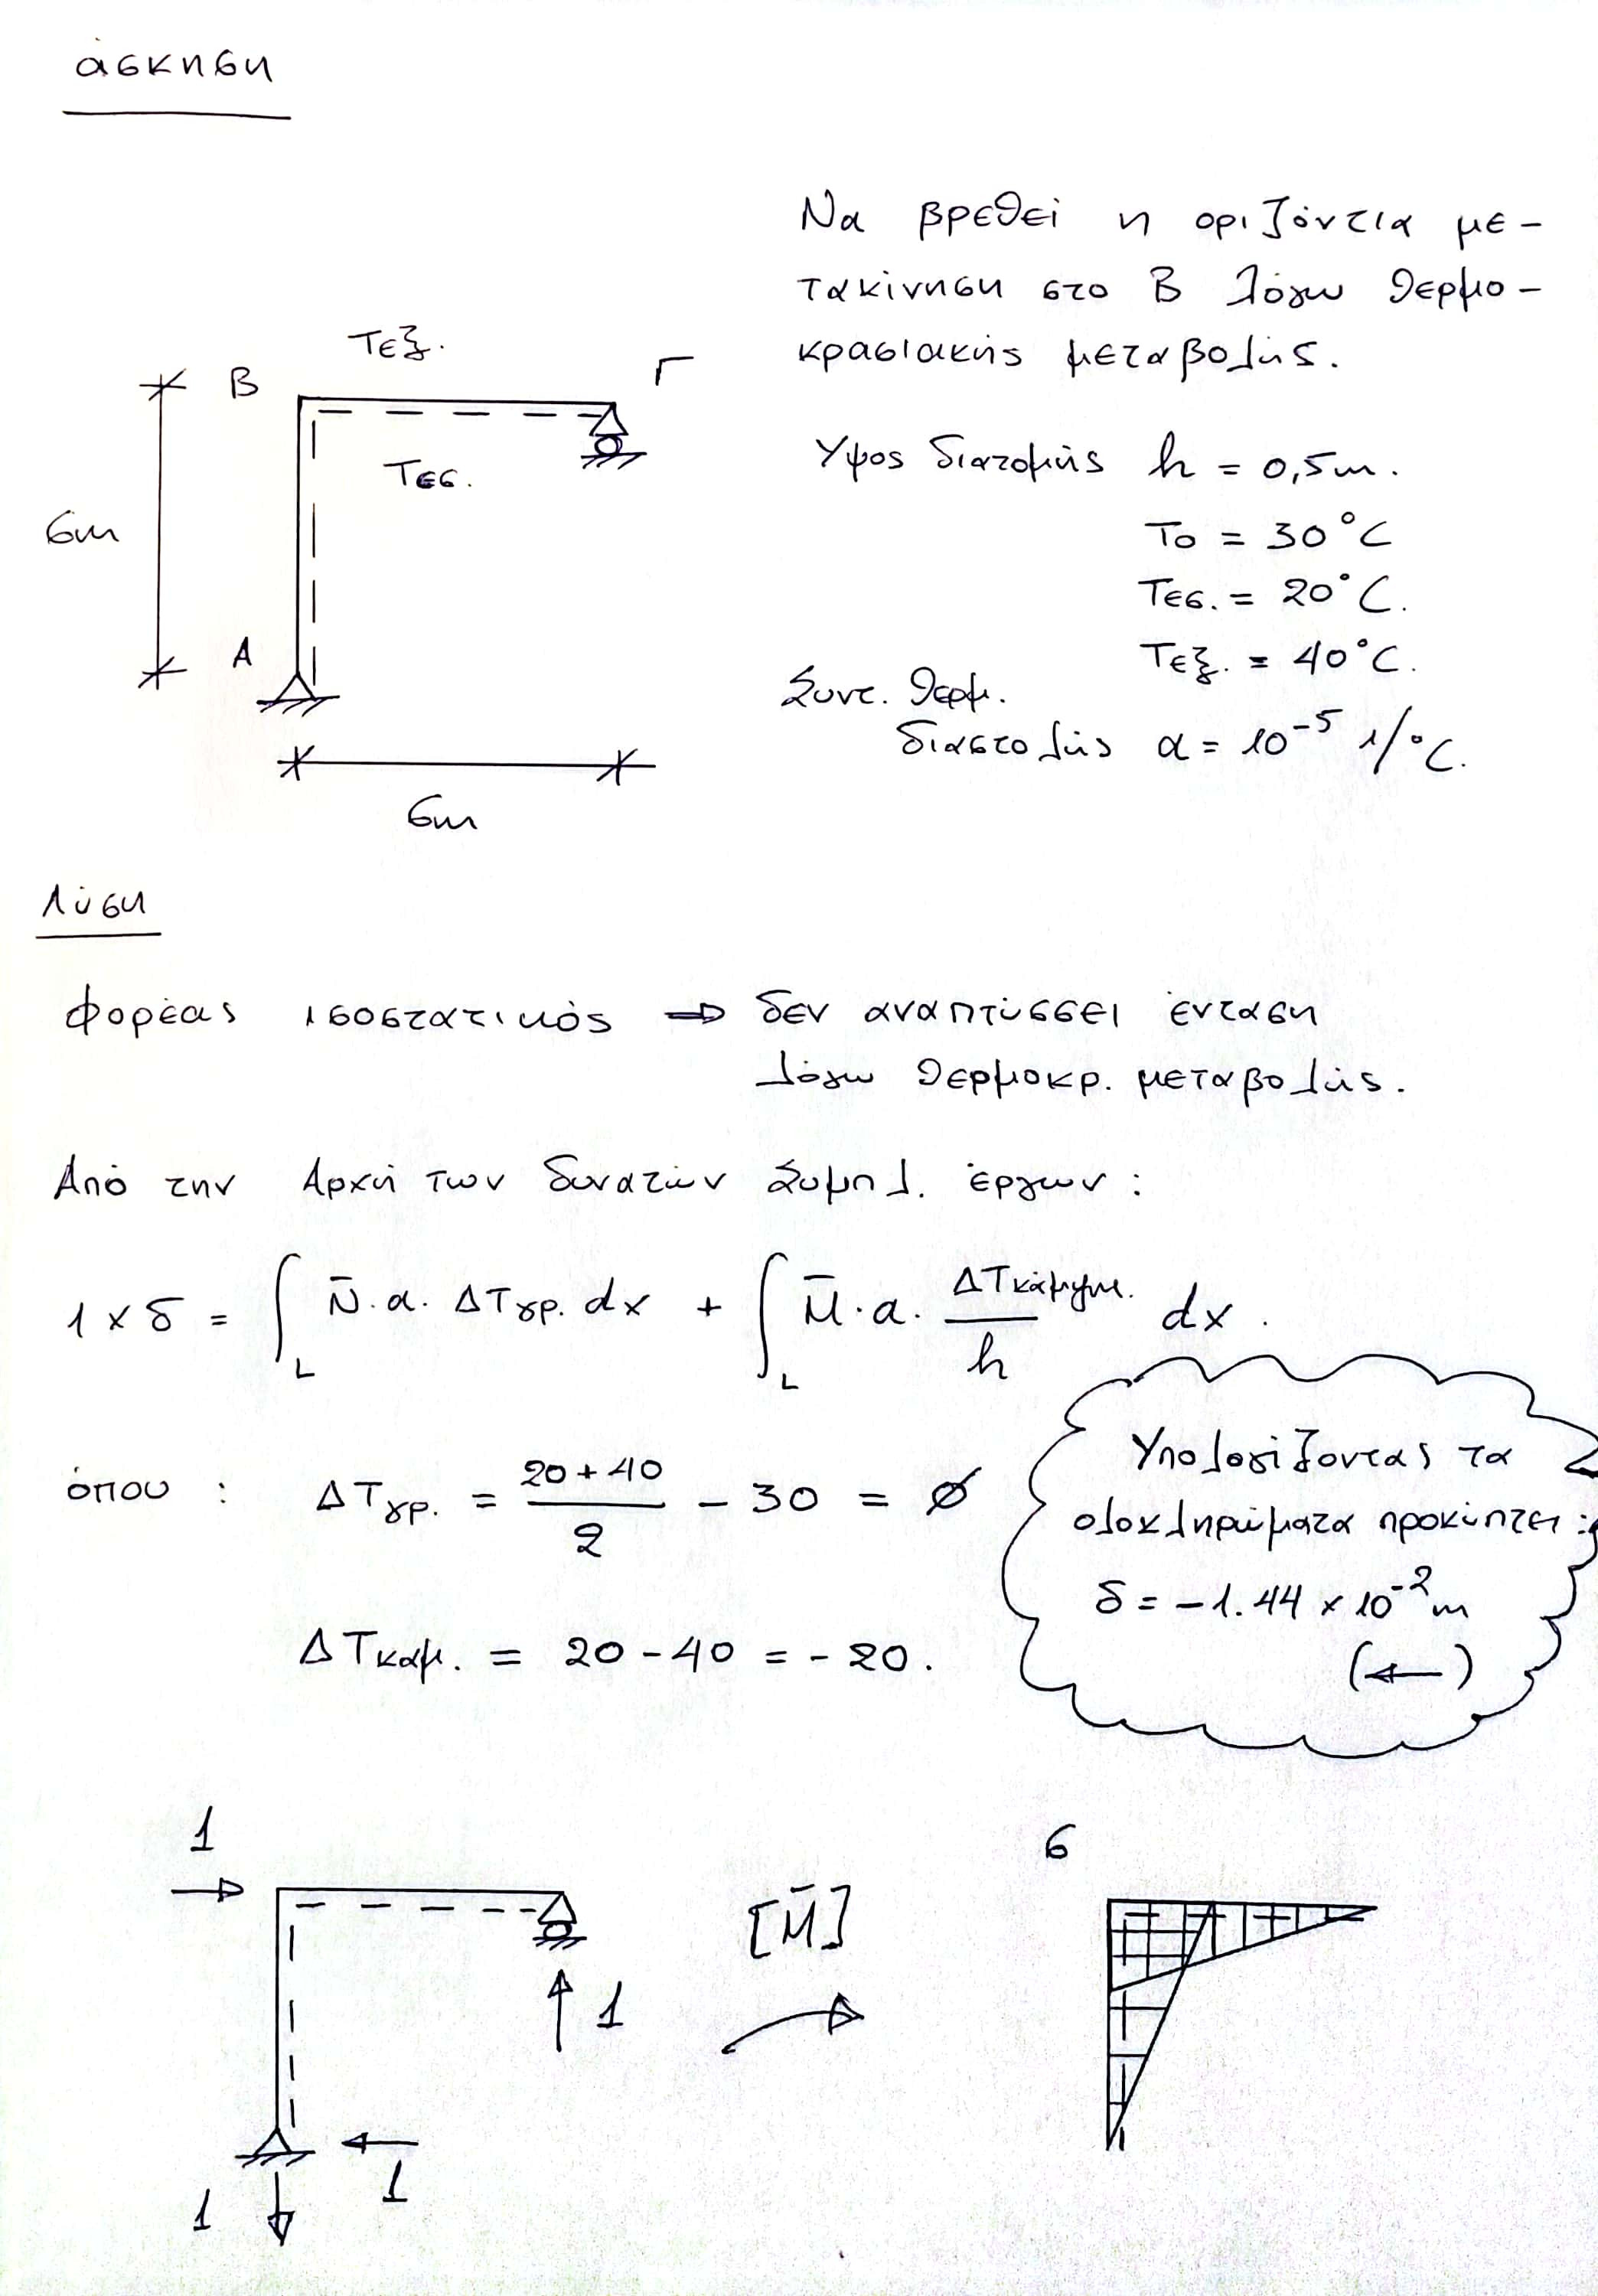 άσκηση
Να βρεθεί η οριζόντια με-
τακίνηση στο Β λόγω θερμο-
κρασιακής μεταβολής.
Τεξ.
Β
Γ
Τεσ.
6m
Α
6m
Υψος διατομής h = 0,5m.
Το = 30°C
Τεσ. = 20°C.
Τεξ. = 40°C.
Συντ. θερμ.
διαστολής α = 10⁻⁵ 1/°C.
Λύση
Φορέας ισοστατικός ⇒ δεν αναπτύσσει ένταση
λόγω θερμοκρ. μεταβολής.
Από την Αρχή των δυνατών Συμπλ. έργων :
1 x δ = ∫_L N̄.α. ΔΤγρ. dx + ∫_L M̄.α. ΔΤκάμψης. / h dx .
όπου : ΔΤγρ. = (20+40)/2 - 30 = ∅
ΔΤκαμ. = 20-40 = -20.
Υπολογίζοντας τα
ολοκληρώματα προκύπτει :
δ = -1.44 x 10⁻² m
(←)
1
6
[M̄]
1
1
1